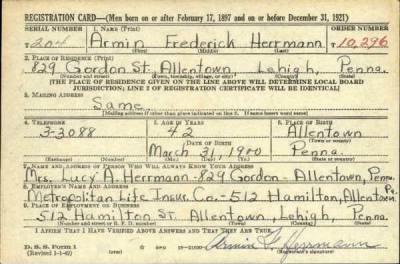 REGISTRATION CARD—(Men born on or after February 17, 1897 and on or before December 31, 1921)
SERIAL NUMBER 1. NAME (Print) ORDER NUMBER
T 204 Armin Frederick Herrmann T 10,296
(First) (Middle) (Last)
2. PLACE OF RESIDENCE (Print)
829 Gordon St. Allentown, Lehigh, Penna.
(Number and street) (Town, township, village, or city) (County) (State)
[THE PLACE OF RESIDENCE GIVEN ON THE LINE ABOVE WILL DETERMINE LOCAL BOARD
JURISDICTION; LINE 2 OF REGISTRATION CERTIFICATE WILL BE IDENTICAL]
3. MAILING ADDRESS
Same
[Mailing address if other than place indicated on line 2. If same insert word same]
4. TELEPHONE 5. AGE IN YEARS 6. PLACE OF BIRTH
3-3088 42 Allentown
DATE OF BIRTH (Town or county)
March 31, 1900 Penna.
(Exchange) (Number) (Mo.) (Day) (Yr.) (State or country)
7. NAME AND ADDRESS OF PERSON WHO WILL ALWAYS KNOW YOUR ADDRESS
Mrs. Lucy A. Herrmann-829 Gordon-Allentown, Penna.
8. EMPLOYER'S NAME AND ADDRESS
Metropolitan Life Insur. Co.-512 Hamilton, Allentown, Pa.
9. PLACE OF EMPLOYMENT OR BUSINESS
512 Hamilton St. Allentown, Lehigh, Penna.
(Number and street or R. F. D. number) (Town) (County) (State)
I AFFIRM THAT I HAVE VERIFIED ABOVE ANSWERS AND THAT THEY ARE TRUE.
D. S. S. Form 1
(Revised 1-1-42)
Armin F. Herrmann
(Registrant's signature)